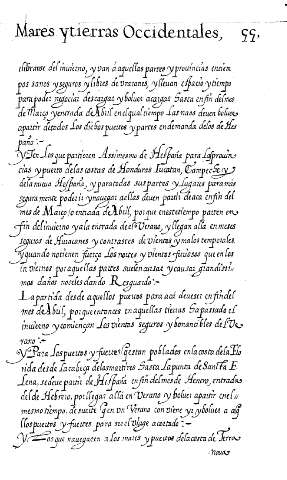 Mares y tierras Occidentales, 99.
elibrarse del inuierno, y van á aquellas partes y prouincias en tiem
pos sanos y seguros y libres de vracanes, y lleuan espacio y tiempo
para poder negociar descargar y boluer a cargar hasta en fin del mes
de Março y entrada de Abril en el qual tiempo las naos deuen boluer
a partir de todos los dichos puertos y partes en demanda de los de Hes
paña:
Y Ten. Los que partieren Assimesmo de Hespaña para las prouin
cias y puertos de las costas de Honduras Iucatan, Campeche y
de la nueua Hespaña, y para todas sus partes y lugares para mas
seguramente poder ir y nauegar a ellas deuen partir de aca en fin del
mes de Março y entrada de Abril, porque en este tiempo parten en
fin del inuierno y a la entrada del Verano, y llegan allà en meses
seguros de Huracanes y contrastes de vientos y malos temporales.
y quando no tienen fuerça los nortes y vientos furiosos que en los
inuiernos por aquellas partes suelen ventar y causar grandissi-
mos daños no se les dando Resguardo:
La partida desde aquellos puertos para aca deue ser en fin del
mes de Abril, porque entonces en aquellas tierras ha passado el
inuierno y comiençan los vientos seguros y bonancibles del Ve-
rano:
Y Para los puertos y fuertes que estan poblados en la costa de la Flo
rida desde la cabeça de los martires hasta la punta de Santa E
Lena, se deue partir de Hespaña en fin del mes de Henero, entrada
del de Hebrero, por llegar allá en Verano y boluer a partir en el
mesmo tiempo. de suerte que en vn Verano conuiene yr y boluer a aq̃
llos puertos y fuertes para ser el viage acertado:
Y Los que nauegaren a los mares y puertos de la costa de Terra
noua